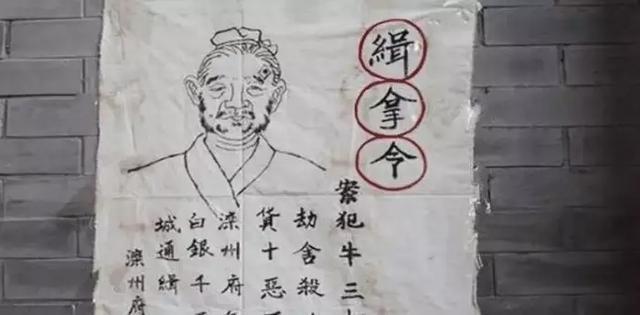 緝拿令
寀犯牛三
劫舍殺
貨十惡
滦州府
白銀千
城通緝
滦州府